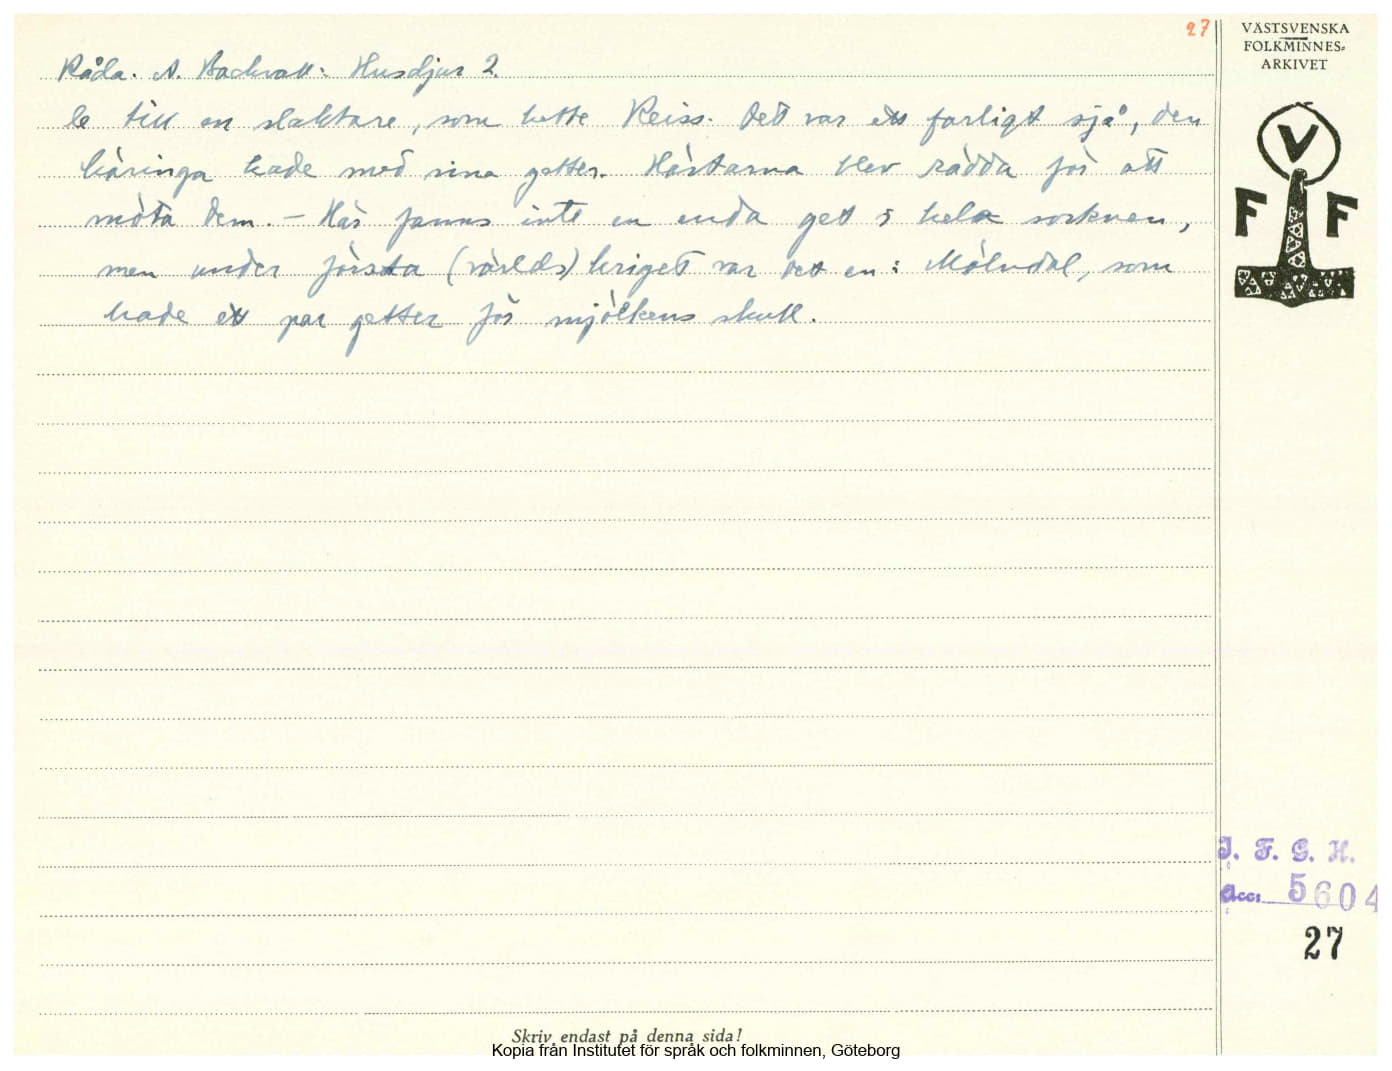 27
VÄSTSVENSKA
FOLKMINNES-
ARKIVET
Råda. A. Backvall: Husdjur 2.
le till en slaktare, som hette Reiss. Det var ett farligt sjå, den
käringa hade med sina getter. Hästarna blev rädda för att
möta dem. – Här fanns inte en enda get i hela socknen,
men under första (världs)kriget var det en i Mölndal, som
hade ett par getter för mjölkens skull.
V
F F
I. F. G. H.
Acc: 5604
27
Skriv endast på denna sida!
Kopia från Institutet för språk och folkminnen, Göteborg